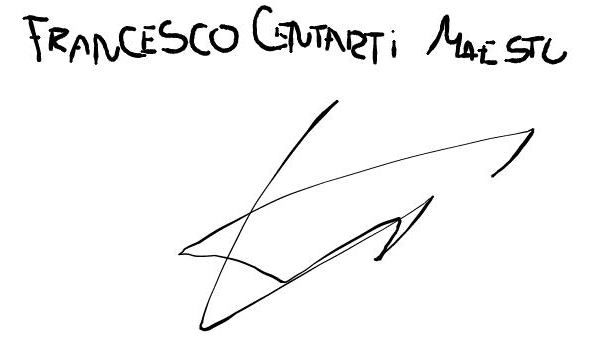 FRANCESCO CENTARTI MAESTU